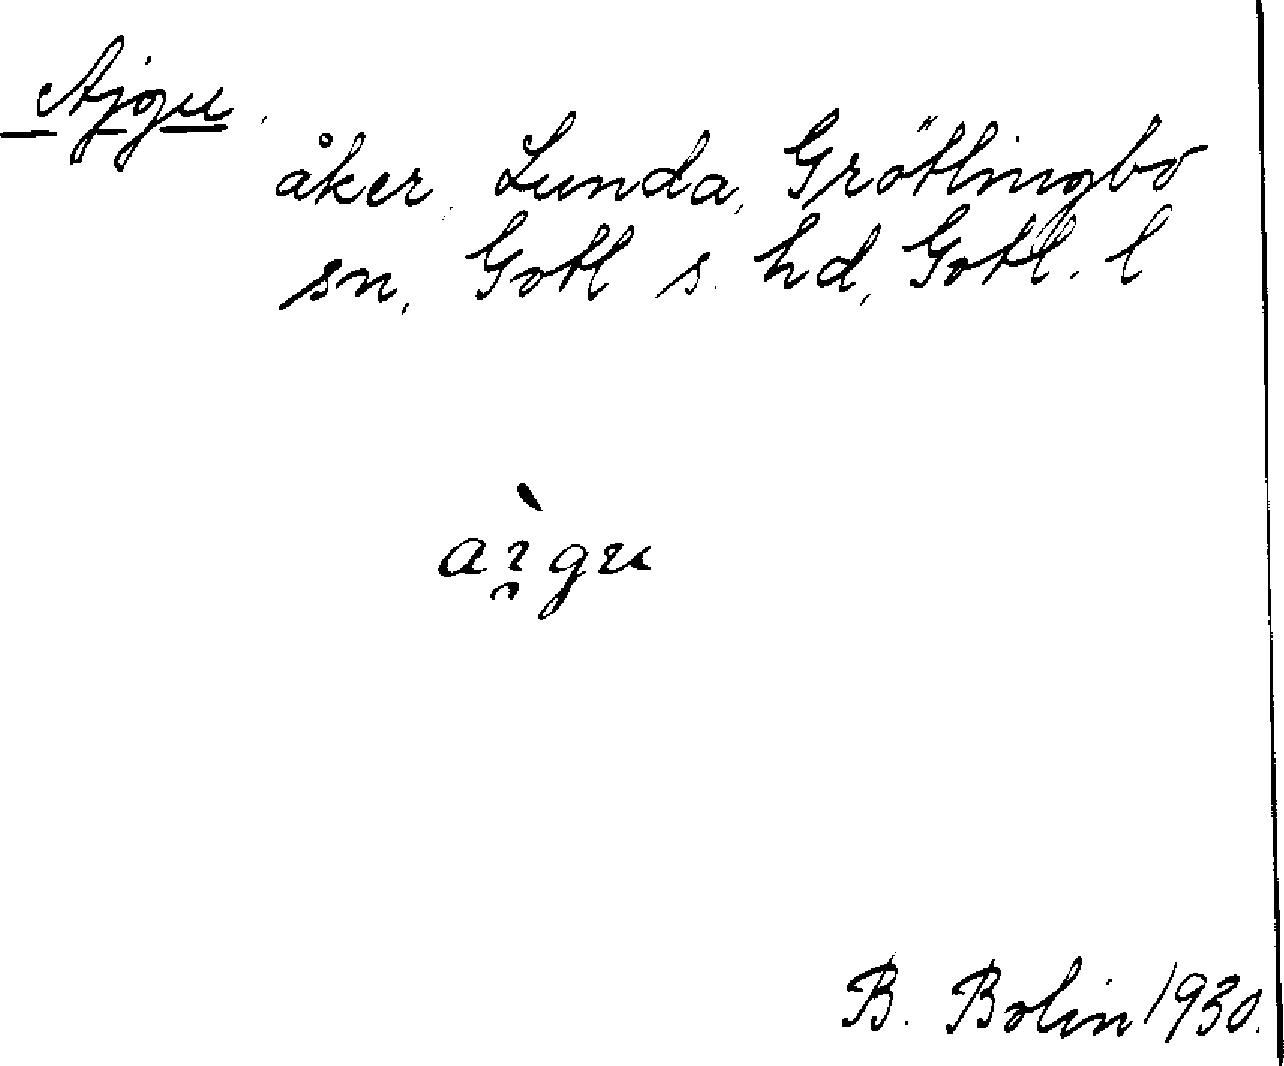 Ajgu.
åker, Lunda, Grötlingbo
sn, Gotl s. hd, Gotl. l
ài̯gu
B. Bolin 1930.